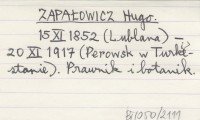 ZAPAŁOWICZ Hugo.
15 XI 1852 (Lublana) –
20 XI 1917 (Perowsk w Turke-
stanie). Prawnik i botanik.
B1050/2111